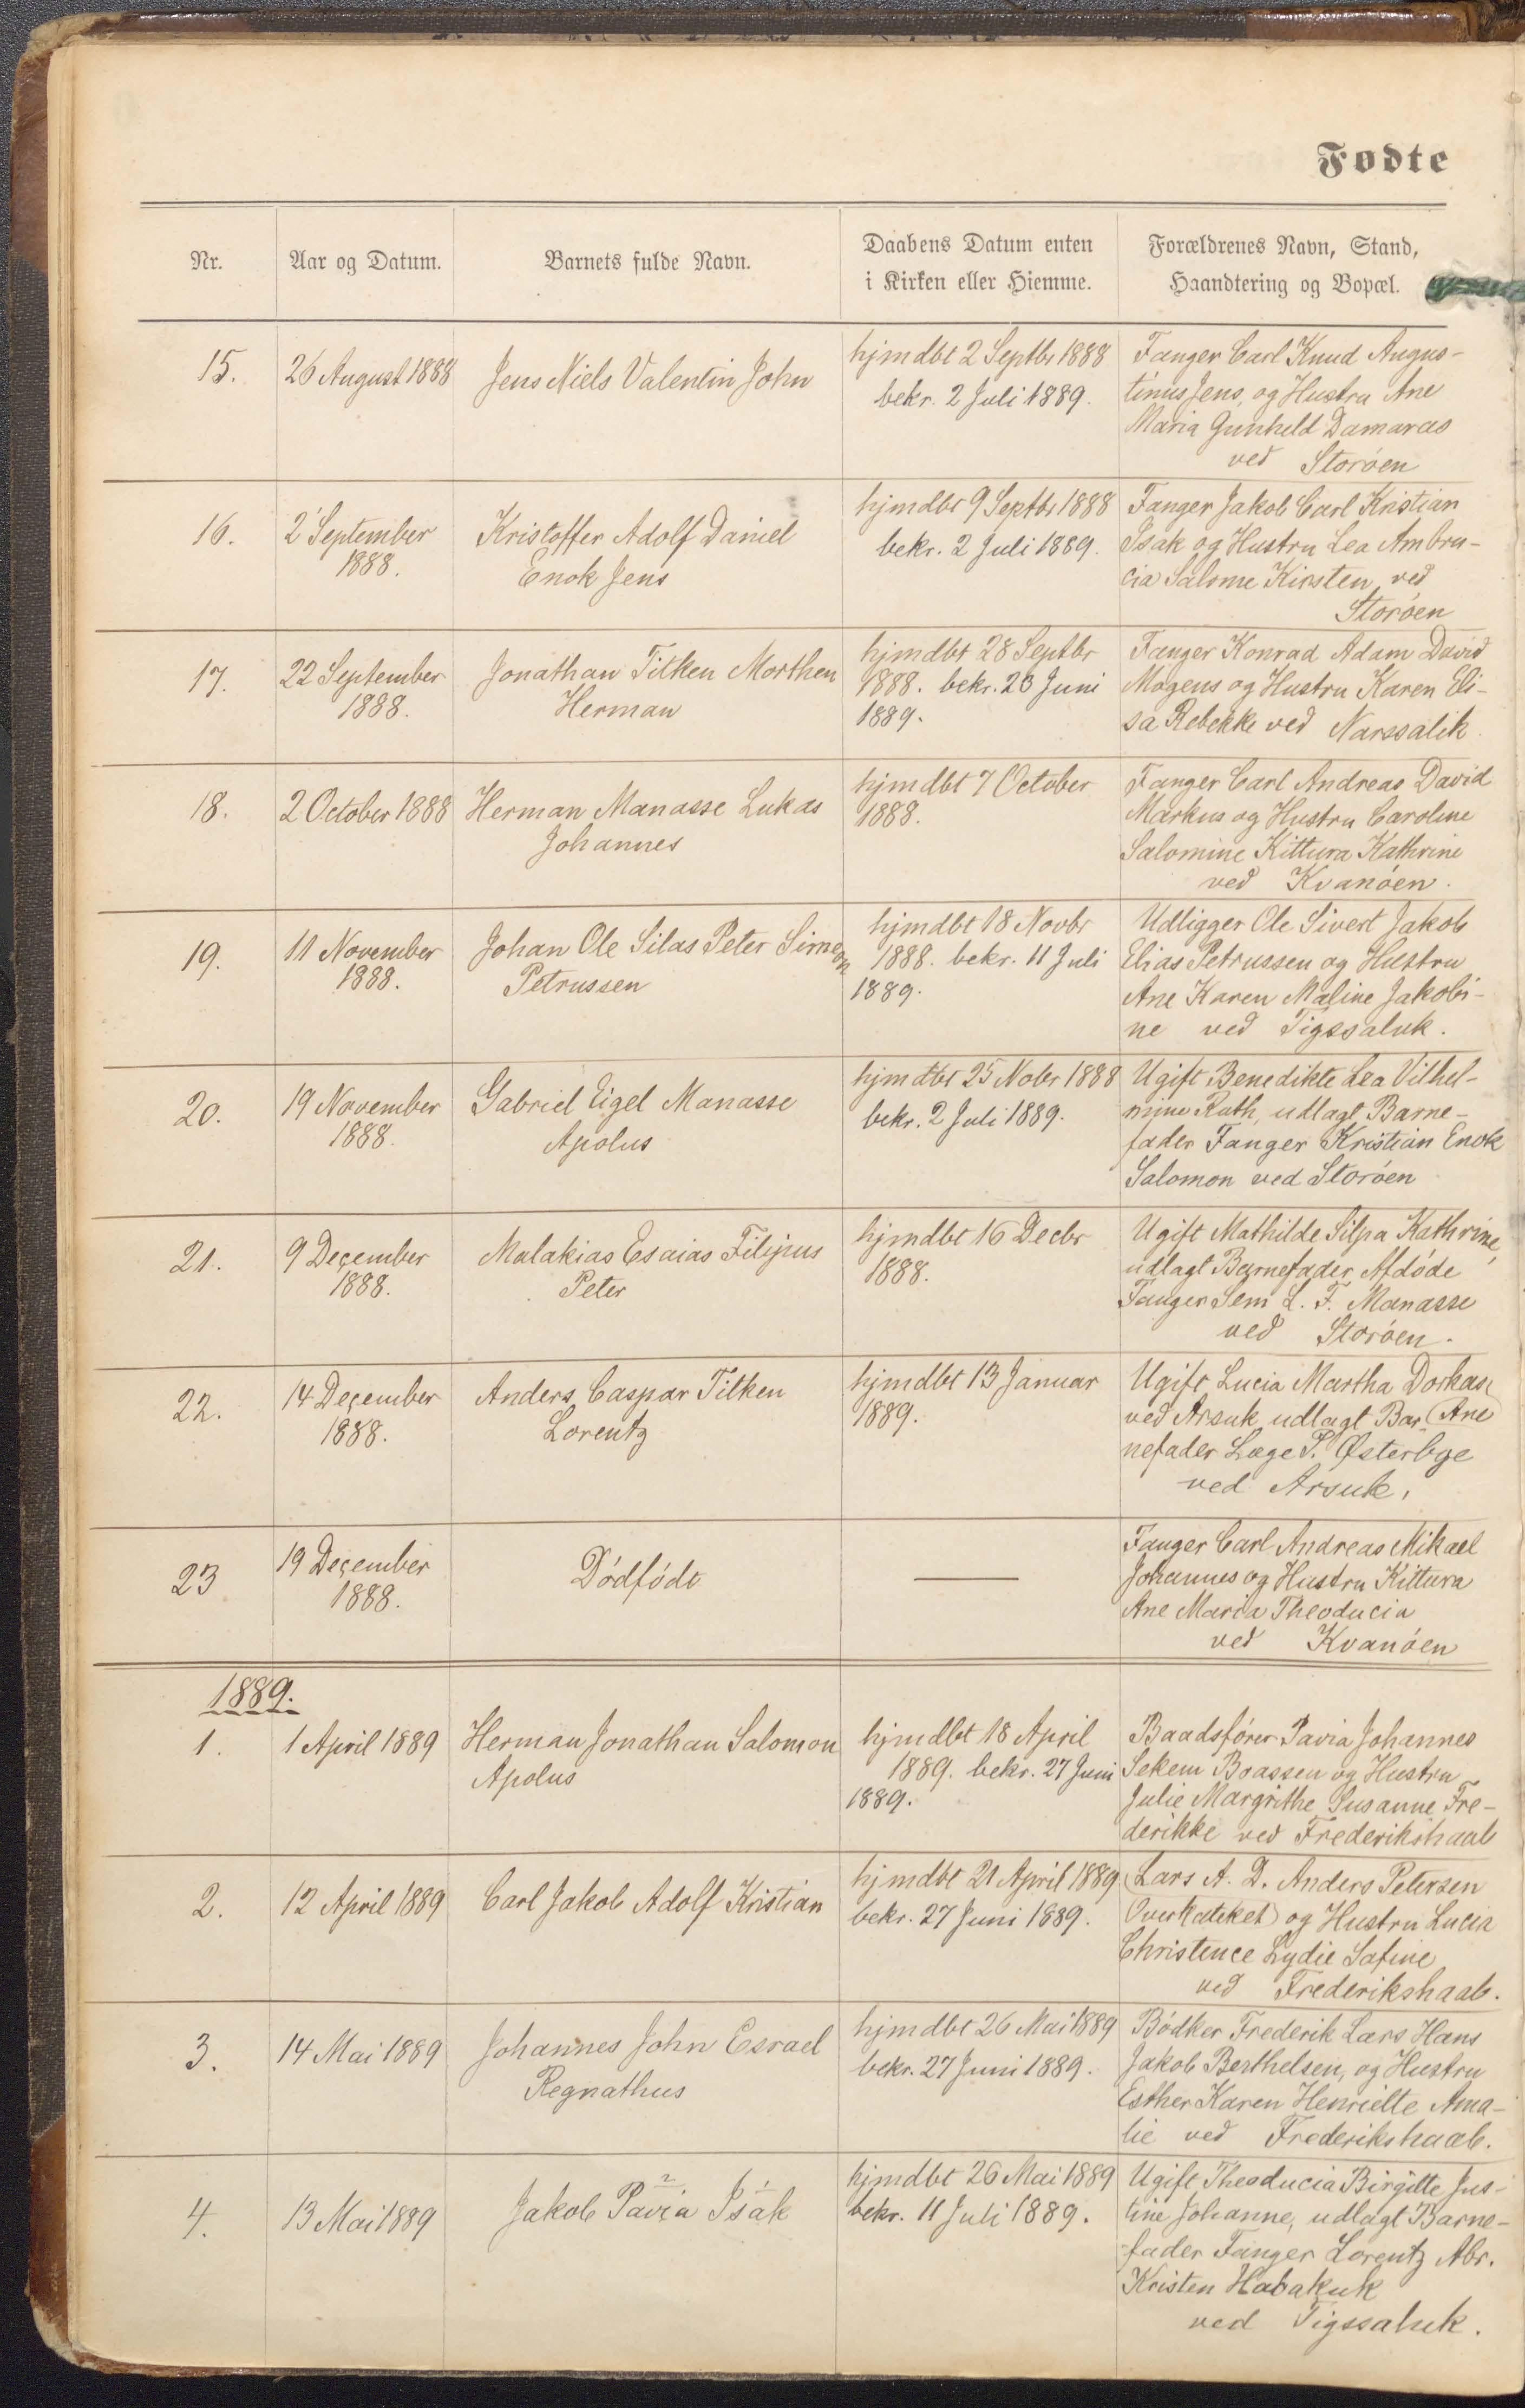 Fødte
Nr.
Aar og Datum.
Barnets fulde Navn.
Daabens Datum enten
i Kirken eller Hiemme.
Forældrenes Navn, Stand,
Haandtering og Bopæl.
15.
26 August 1888
Jens Niels Valentin John
hjmdbt 2 Septbr 1888
bekr. 2 Juli 1889.
Fanger Carl Knud Augus-
tinus Jens, og Hustru Ane
Maria Gunhild Damaras
ved Storöen
16.
2 September
1888.
Kristoffer Adolf Daniel
Enok Jens
hjmdbt 9 Septbr 1888
bekr. 2 Juli 1889.
Fanger Jakob Carl Kristian
Isak og Hustru Lea Ambru-
cia Salome Kirsten ved
Storöen
17.
22 September
1888.
Jonathan Titken Morthen
Herman
hjmdbt 28 Septbr
1888. bekr. 20 Juni
1889.
Fanger Konrad Adam David
Mogens og Hustru Karen Eli-
sa Rebekke ved Narssalik
18.
2 October 1888
Herman Manasse Lukas
Johannes
hjmdbt 7 October
1888.
Fanger Carl Andreas David
Markus og Hustru Caroline
Salomine Kittura Kathrine
ved Kvanöen.
19.
11 November
1888.
Johan Ole Silas Peter Simeon
Petrussen
hjmdbt 18 Novbr
1888. bekr. 11 Juli
1889.
Udligger Ole Sivert Jakob
Elias Petrussen og Hustru
Ane Karen Maline Jakobi-
ne ved Tigssaluk.
20.
19 November
1888.
Gabriel Eigel Manasse
Apolus
hjmdbt 25 Nobr 1888
bekr. 2 Juli 1889.
Ugift Benedikte Lea Vilhel-
mine Ruth, udlagt Barne-
fader Fanger Kristian Enok
Salomon ved Storöen
21.
9 December
1888.
Malakias Esaias Filipus
Peter
hjmdbt 16 Decbr
1888.
Ugift Mathilde Silpa Kathrine,
udlagt Barnefader Afdöde
Fanger Sem L. F. Manasse
ved Storöen.
22.
14 December
1888.
Anders Caspar Titken
Lorentz
hjmdbt 13 Januar
1889.
Ugift Lucia Martha Dorkas
ved Arsuk, udlagt Bar- (Ane)
nefader Læge P. Østerbye
ved Arsuk.
23
19 December
1888.
Dödfödt
Fanger Carl Andreas Mikael
Johannes og Hustru Kittura
Ane Maria Theoducia
ved Kvanöen
1889.
1.
1 April 1889
Herman Jonathan Salomon
Apolus
hjmdbt 18 April
1889. bekr. 27 Juni
1889.
Baadsförer Pavia Johannes
Sekem Boassen og Hustru
Julie Margrithe Susanne Fre-
derikke ved Frederikshaab
2.
12 April 1889
Carl Jakob Adolf Kristian
hjmdbt 21 April 1889
bekr. 27 Juni 1889.
Lars A. D. Anders Petersen
(Overkateket) og Hustru Lucia
Christence Lydie Safine
ved Frederikshaab.
3.
14 Mai 1889
Johannes John Esrael
Regnathus
hjmdbt 26 Mai 1889
bekr. 27 Juni 1889.
Bödker Frederik Lars Hans
Jakob Berthelsen, og Hustru
Esther Karen Henriette Ama-
lie ved Frederikshaab.
4.
13 Mai 1889
Jakob Pavia Isak
hjmdbt 26 Mai 1889
bekr. 11 Juli 1889.
Ugift Theoducia Birgitte Jus-
tine Johanne, udlagt Barne-
fader Fanger Lorentz Abr.
Kristen Habakuk
ved Tigssaluk.